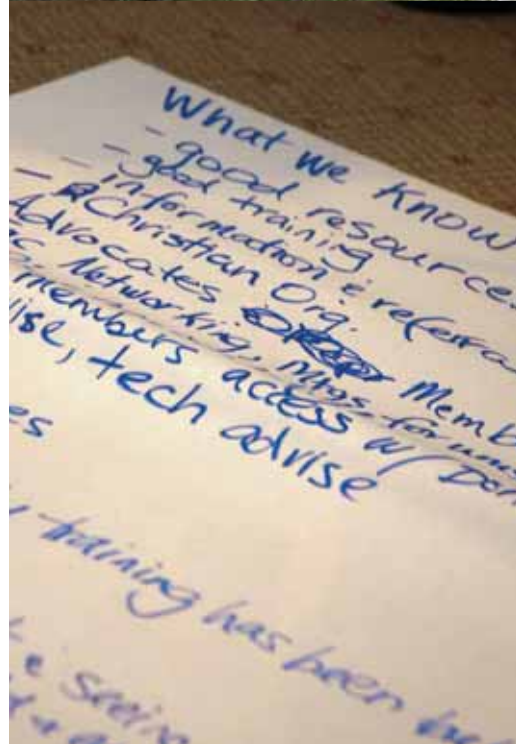 What we Know
- good resource
- good training
- information & referra
- Christian Org.
Advocates Memb
Networking, Mtgs for
members access w/ Don
ise, tech advise
es
training has been
& seeing